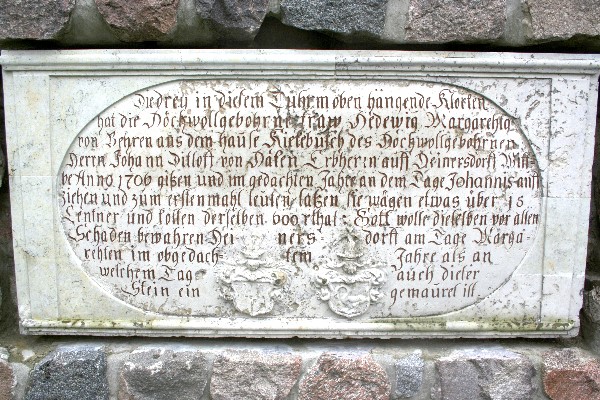 Die drey in diesem Tuhrm oben hangende Klocken
hat die Hochwollgebohrne fraw Hedewig Margarehta
von Behren aus dem hause Kielebusch des Hochwollgebohrnen
Herrn Johann Dilloff von Erbherrn auff Heinersdorff Wit=
we Anno 1706 gißen und im gedachten Jahre an dem Tage Johannis auff
ziehen und zum erstenmahl leuten laßen sie wägen etwas über
Centner und kosten derselben 600 rthal: Gott wolle dieselben vor allen
Schaden bewahren Hei ners= dorff am Tage Marga=
rehten im obgedach= tem Jahre als an
welchem Tag auch dieser
Stein ein gemauret ist